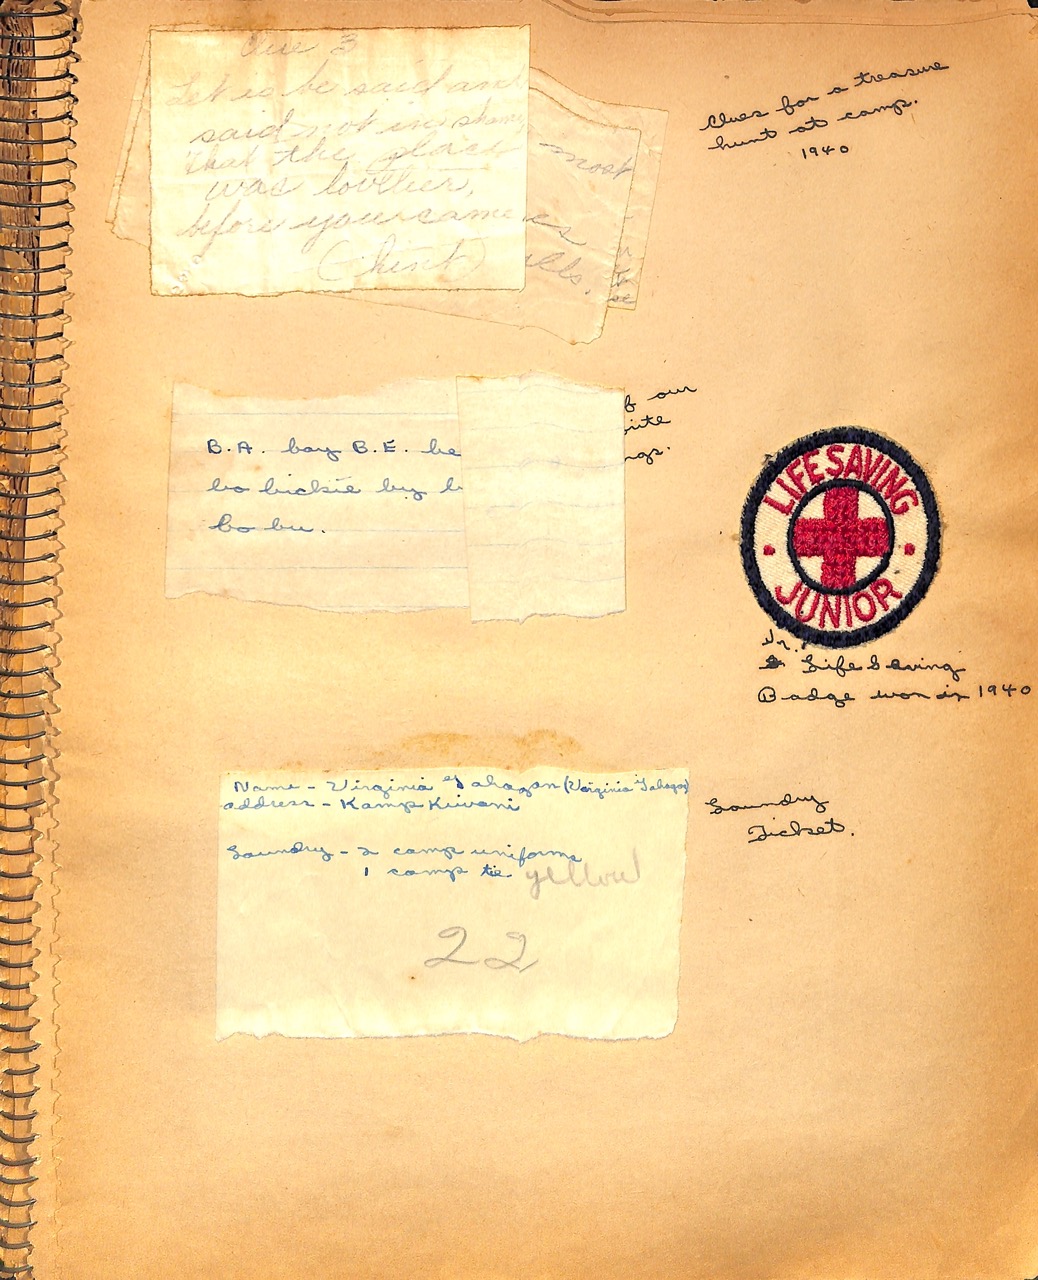 Clue 3
Let is be said and
said not in shame
that the place
was lovlier,
before you came
(hint)
most
es
lls.
Clues for a treasure
hunt at camp.
1940
B.A. bay B.E. be
bo bickie by b
bo bu.
f our
ite
ngs.
LIFE SAVING
JUNIOR
Jr.
Life Saving
Badge won in 1940
Name - Virginia (Virginia
address - Kamp Kiwani
Laundry - 2 camp uniforms
1 camp tie yellow
22
Laundry
Ticket.